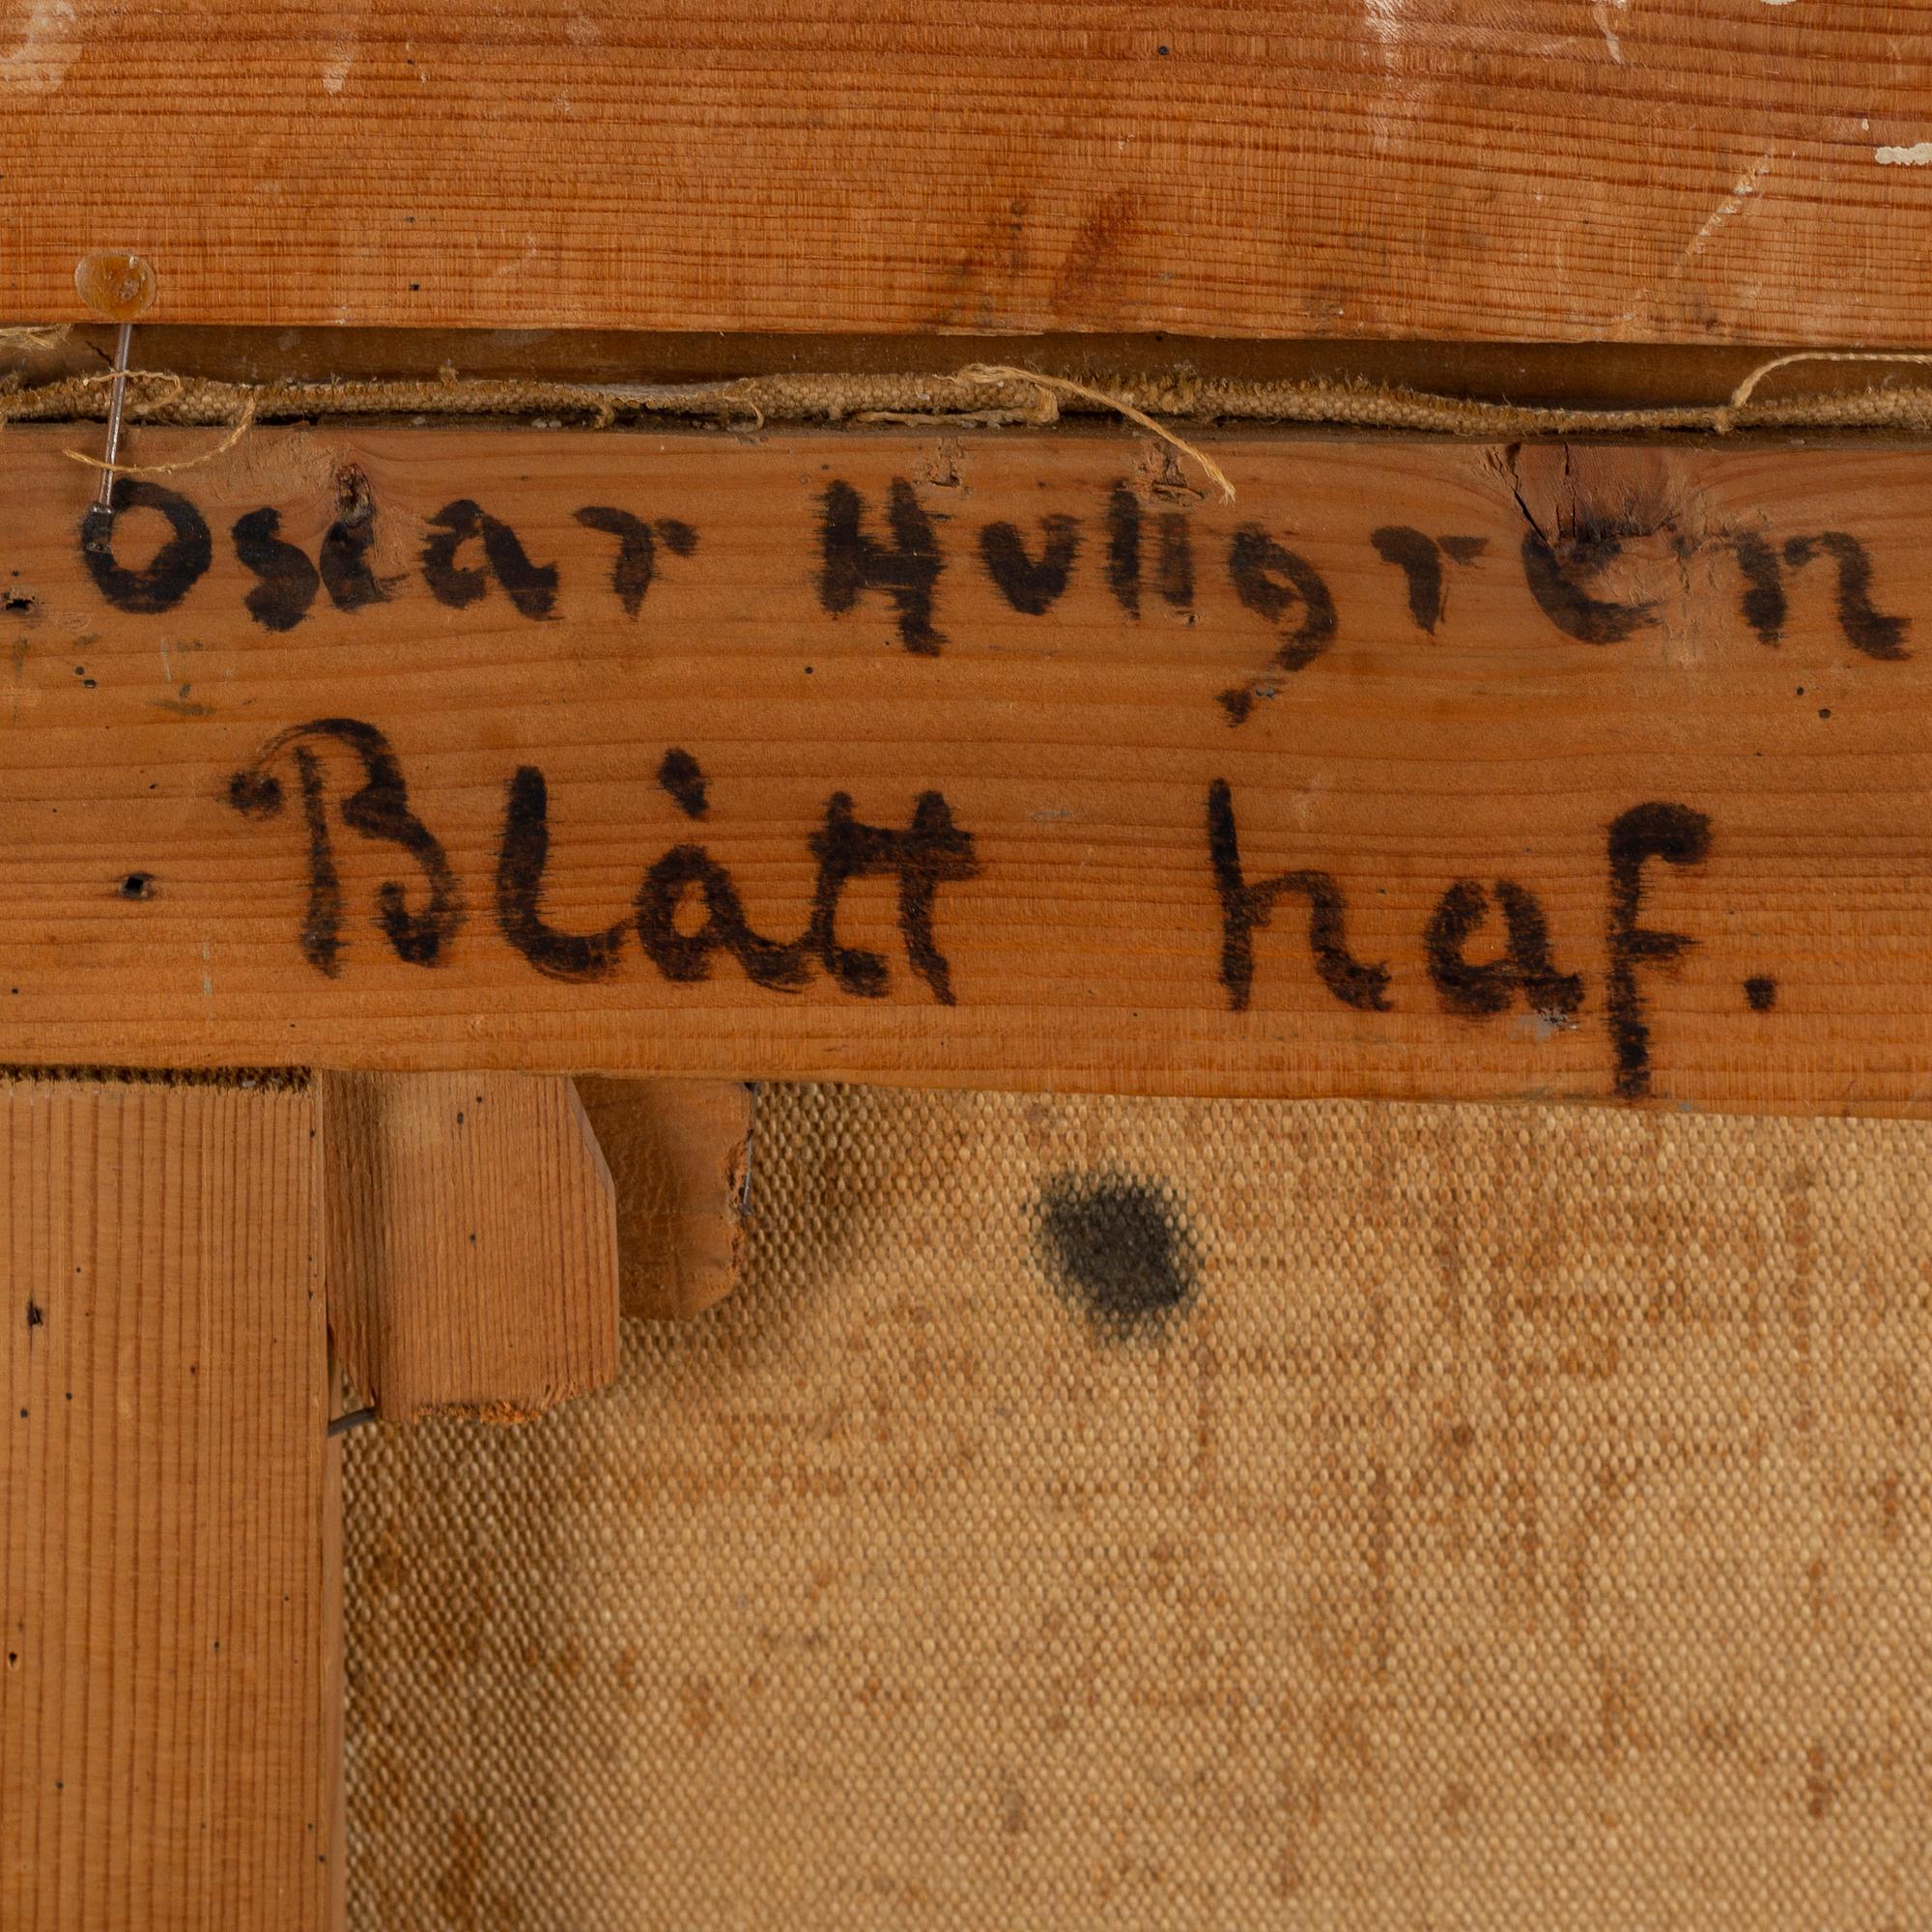 Oscar Hullgren
Blått haf.